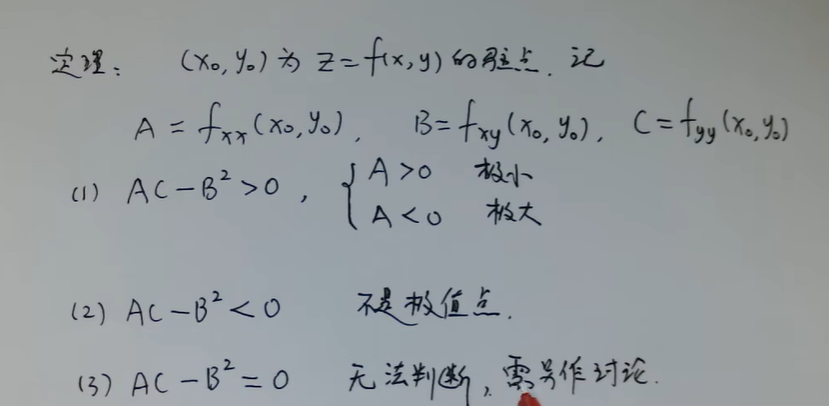 定理: (x₀, y₀) 为 z = f(x, y) 的驻点. 记
A = fₓₓ(x₀, y₀), B = fₓᵧ(x₀, y₀), C = fᵧᵧ(x₀, y₀)
(1) AC - B² > 0, { A > 0 极小
A < 0 极大
(2) AC - B² < 0 不是极值点.
(3) AC - B² = 0 无法判断, 需另作讨论.